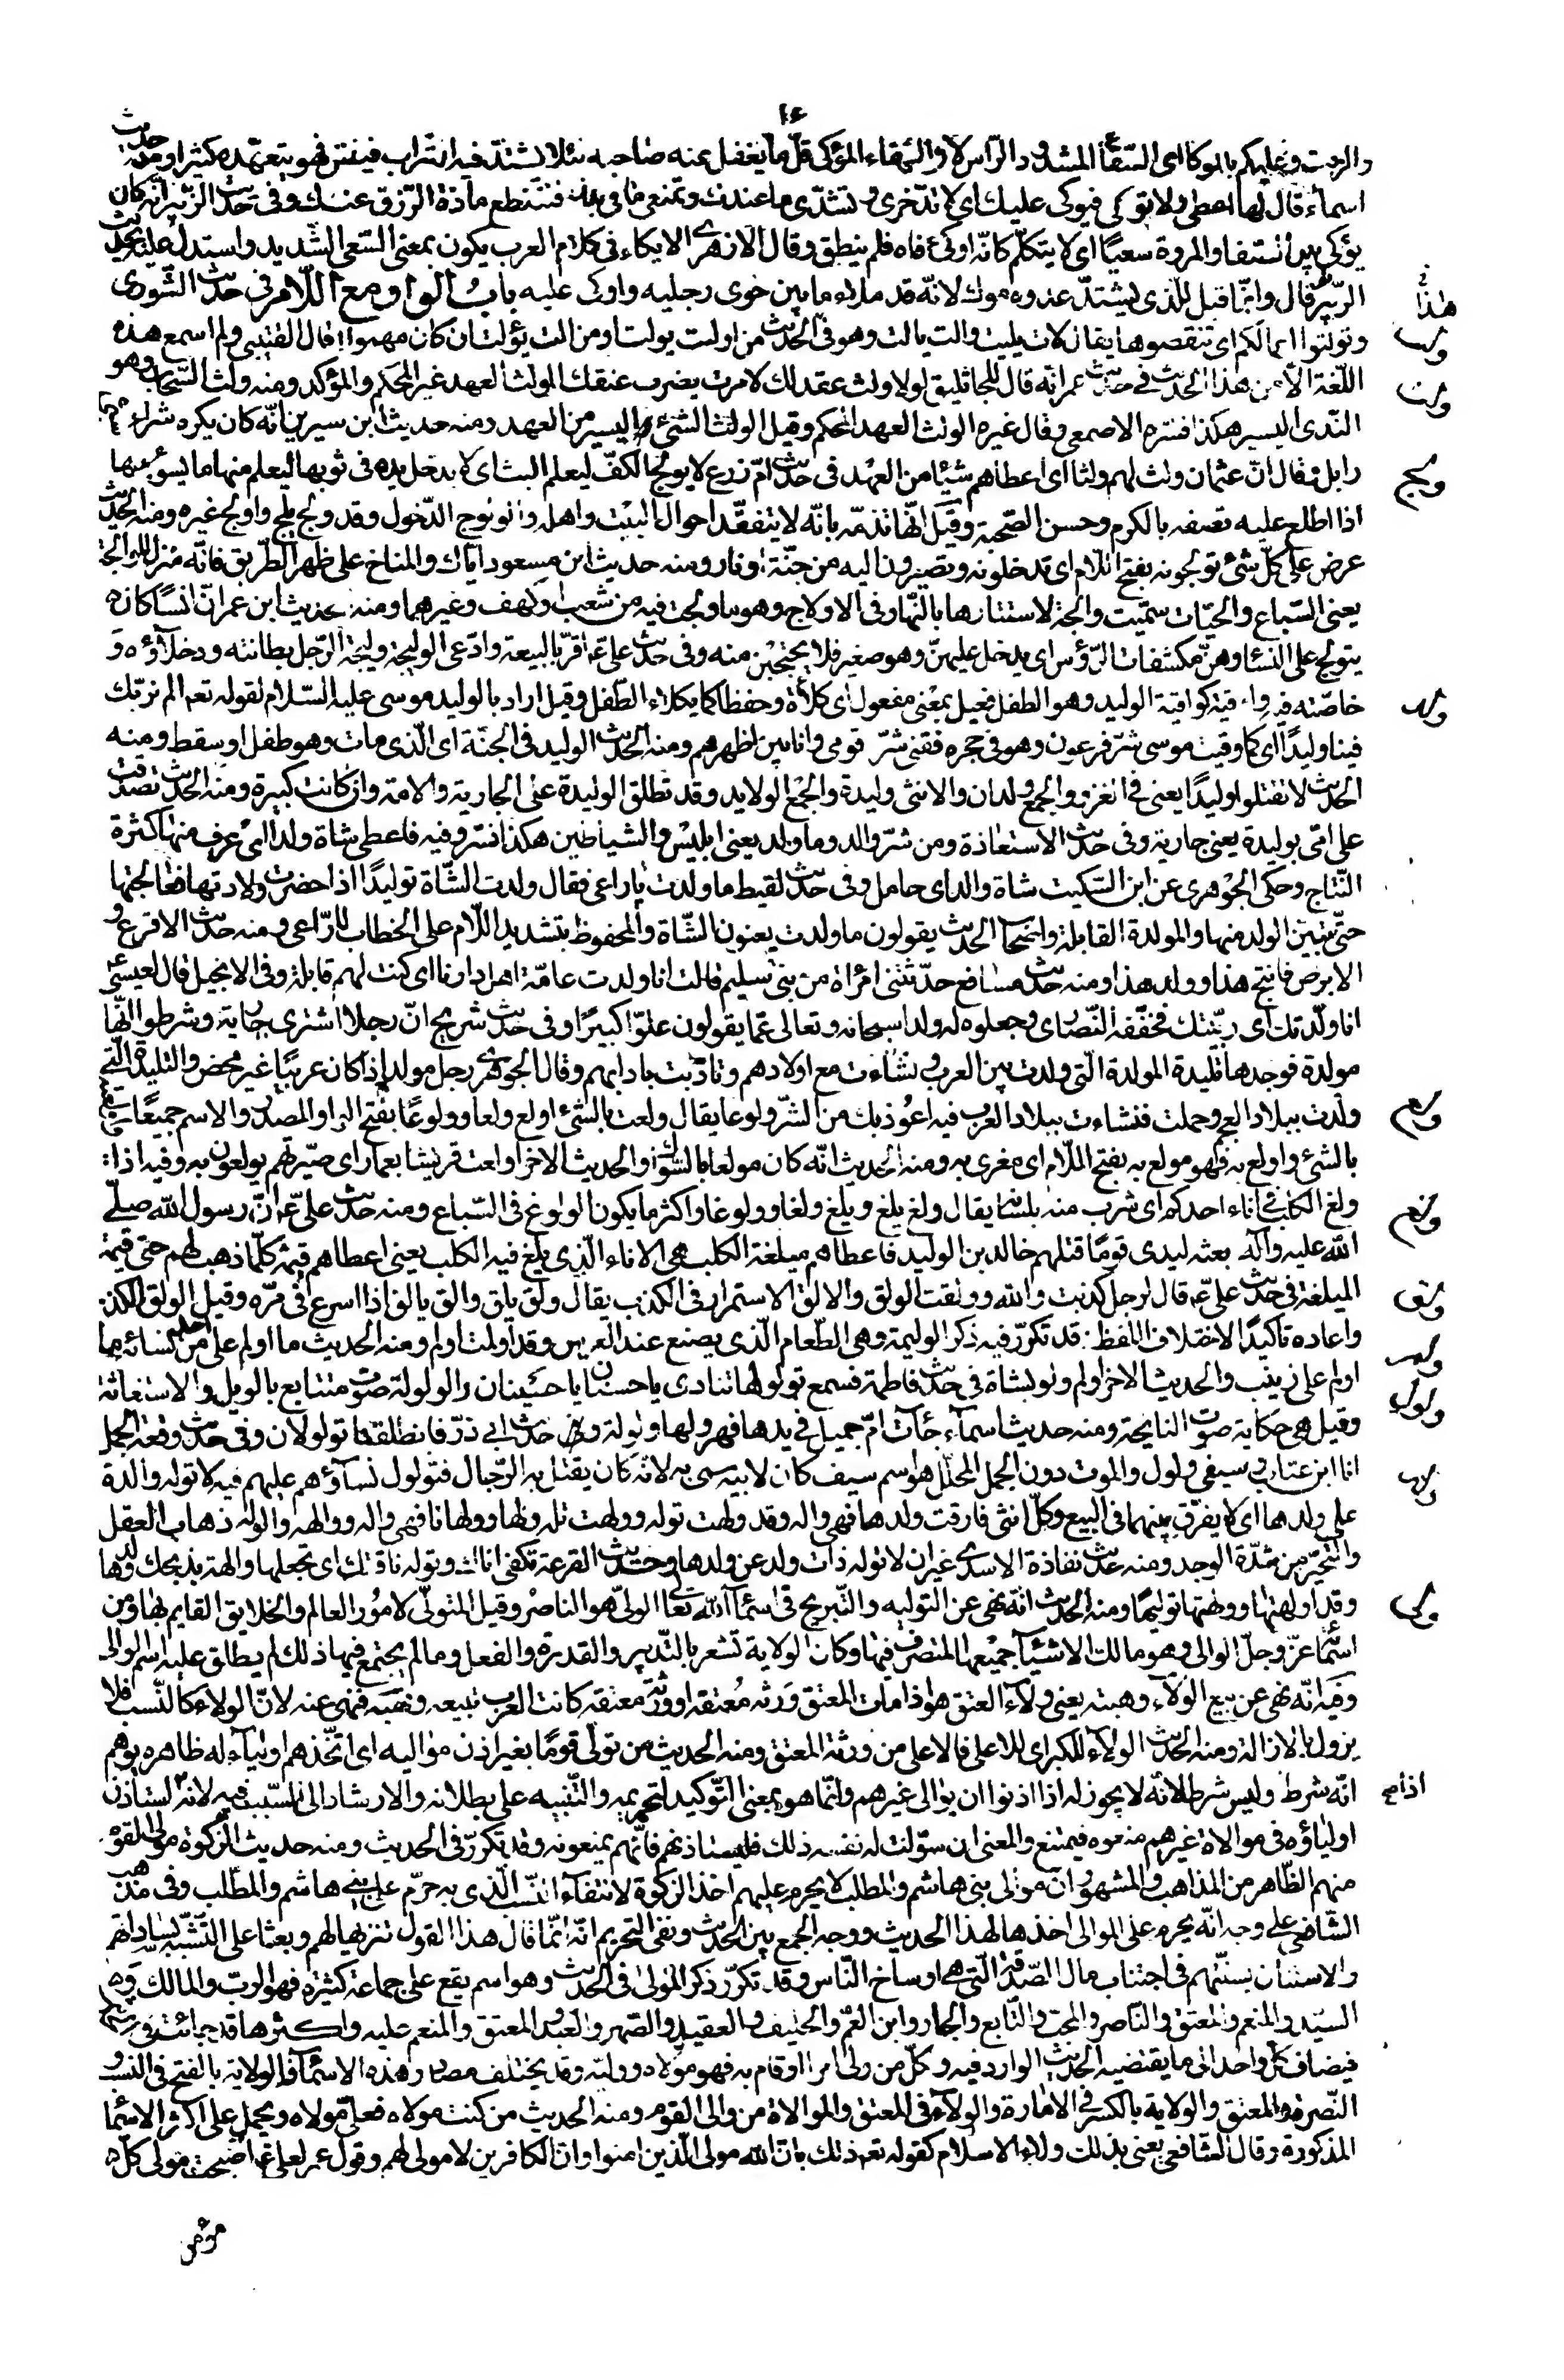 والمزفت وعليكم بالموكا اى السّقاء المشدود الرّاس لانّ السّقاء الموكى قلّ ما يغفل عنه صاحبه لئلا يشتدّ فيه الشراب فينشقّ فهو يتعهّده كثيرا ومنه حديث
اسماء قال لها اعطى ولا توكى فيوكى عليك اى لا تدّخرى وتشدّى ما عندك وتمنعى ما فى يدك فتنقطع مادّة الرّزق عنك وفى حديث الزّبير انّه كان
يوكى بين الصّفا والمروة سعيًا اى لا يتكلّم كانّه اوكى فاه فلم ينطق وقال الازهرى الايكاء فى كلام العرب يكون بمعنى السّعى الشّديد واستدلّ عليه بحديث
الزّبير قال وانّما قيل للّذى يشتدّ عدوه موك لانّه قد ملأ ما بين خوى رجليه واوكى عليه باب الواو مع اللّام فى حديث الشّورى
وتولتوا اعمالكم اى تنقصوها يقال لات يليت والت يالت وهو فى الحديث من اولت يولت او من الت يؤلت ان كان مهموزا قال القتيبى ولم اسمع هذه
اللّغة الّا من هذا الحديث فى حديث عمر انّه قال للجاثليق لولا ولث عقد لك لامرت بضرب عنقك الولث العهد غير المحكم والمؤكد ومنه ولث السّحاب وهو
النّدى اليسير هكذا فسّره الاصمعى وقال غيره الولث العهد المحكم وقيل الولث الشئ اليسير من العهد ومنه حديث ابن سيرين انّه كان يكره شراء
زابل وقال انّ عثمان ولث لهم ولثا اى اعطاهم شيئا من العهد فى حديث امّ زرع لا يولج الكفّ ليعلم البث اى لا يدخل يده فى ثوبها ليعلم منها ما يسوءها
اذا اطلع عليه تصفه بالكرم وحسن الصّحبة وقيل انّها تذمّه بانّه لا يتفقّد احوال البيت واهله والولوج الدّخول وقد ولج يلج واولج غيره ومنه الحديث
عرض علىّ كلّ شئ تولجونه بفتح اللّام اى تدخلونه وتصيرون اليه من جنّة او نار ومنه حديث ابن مسعود ايّاك والمناخ على ظهر الطّريق فانّه منزل للوالجة
يعنى السّباع والحيّات سمّيت والجة لاستتارها بالنّهار فى الاولاج وهو ما ولجت فيه من شعب او كهف وغيرهما ومنه حديث ابن عمر انّ انسًا كان
يتولج على النّساء وهنّ مكشّفات الرّؤس اى يدخل عليهنّ وهو صغير فلا يحتجبن منه وفى حديث علىّ اقرّ بالبيعة وادّعى الوليجة وليجة الرّجل بطانته ودخلاؤه و
خاصّته فيه واقية كواقية الوليد وهو الطفل فعيل بمعنى مفعول اى كلأة وحفظا كما يكلاء الطّفل وقيل اراد بالوليد موسى عليه السّلام لقوله تعم الم نربّك
فينا وليدًا اى كما وقيت موسى شرّ فرعون وهو فى حجره فقنى شرّ قومى وانا بين اظهرهم ومنه الحديث الوليد فى الجنّة اى الّذى مات وهو طفل او سقط ومنه
الحديث لا تقتلوا وليدًا يعنى فى الغزو والجمع ولدان والانثى وليدة والجمع الولايد وقد تطلق الوليدة على الجارية والامة وان كانت كبيرة ومنه الحديث تصدّقت
على امّى بوليدة يعنى جارية وفى حديث الاستعاذة ومن شرّ والد وما ولد يعنى ابليس والشياطين هكذا فسّر وفيه فاعطى شاة والدا اى عرف منها كثرة
النّتاج وحكى الجوهرى عن ابن السّكيت شاة والد اى حامل وفى حديث لقيط ما ولدت يا راعى فقال ولدت الشّاة توليدًا اذا حضرت ولادتها فعالجتها
حتّى تبين الولد منها والمولدة القابلة واصحاب الحديث يقولون ما ولدت يعنون الشّاة والمحفوظ بتشديد اللّام على الخطاب للرّاعى ومنه حديث الاقرع و
الابرص فانتج هذا وولد هذا ومنه حديث مسافع حدّثتنى امرأة من بنى سليم قالت انا ولدت عامّة اهل دارنا اى كنت لهم قابلة وفى الانجيل قال لعيسى
انا ولّدتك اى ربّيتك فخفّفه النّصارى وجعلوه له ولدا سبحانه وتعالى عمّا يقولون علوّا كبيرًا وفى حديث شريح انّ رجلا اشترى جارية وشرطوا انّها
مولدة فوجدها تليدة المولدة الّتى ولدت بين العرب ونشاءت مع اولادهم وتادّبت بادابهم وقال الجوهرى رجل مولد اذا كان عربيًا غير محض والتليدة الّتى
ولدت ببلاد العجم وحملت فنشاءت ببلاد العرب فيه اعوذ بك من الشرّ ولوعا يقال ولعت بالشئ اولع ولعا وولوعًا بفتح الواو المصدر والاسم جميعًا
بالشئ واولع به فهو مولع به بفتح اللّام اى مغرى به ومنه الحديث انّه كان مولعا بالسّواك والحديث الاخر اولعت قريشا بعمار اى صيّرتهم يولعون به وفيه اذا
ولغ الكلب فى اناء احدكم اى شرب منه بلسانه يقال ولغ يلغ ويلغ ولغا وولوغا واكثر ما يكون الولوغ فى السّباع ومنه حديث علىّ انّ رسول الله صلّى
الله عليه وآله بعثه ليدى قومًا قتلهم خالد بن الوليد فاعطاهم ميلغة الكلب هى الاناء الّذى يلغ فيه الكلب يعنى اعطاهم قيمة كلّما ذهب لهم حتى قيمة
الميلغة فى حديث علىّ قال لرجل كذبت والله وولقت الولق والالق الاستمرار فى الكذب يقال ولق يلق والق يالق اذا اسرع فى مرّه وقيل الولق الكذب
واعاده تاكيدًا لاختلاف اللفظ قد تكرّر فيه ذكر الوليمة وهى الطّعام الّذى يصنع عند العرس وقد اولمت اولم ومنه الحديث ما اولم على احد من نسائه ما
اولم على زينب والحديث الاخر اولم ولو بشاة فى حديث فاطمة فسمع تولولها تنادى يا حسنان يا حسينان الولولة صوت متتابع بالويل والاستغاثة
وقيل هى حكاية صوت النايحة ومنه حديث اسماء جاءت امّ جميل فى يدها فهر ولها ولولة وفى حديث ابى ذرّ فانطلقتا تولولان وفى حديث وقعة الجمل
انا ابن عتاب وسيفى ولول والموت دون الجمل المجلل هو اسم سيف كان لابيه سمى به لانّه كان يقتل به الرّجال فتولول نساؤهم عليهم فيه لا توله والدة
على ولدها اى لا يفرّق بينهما فى البيع وكلّ انثى فارقت ولدها فهى واله وقد ولهت توله وولهت تله ولها وولهانا فهى والهة وواله والوله ذهاب العقل
والتحيّر من شدّة الوجد ومنه حديث نقادة الاسدى غير ان لا توله ذات ولد عن ولدها وحديث القرعة تكفئ اناءك وتوله ناقتك اى تجعلها والهة بذبحك ولدها
وقد اولهتها وولهتها توليهًا ومنه الحديث انّه نهى عن التوليه والتّبريح فى اسماء الله تعالى الولىّ هو الناصر وقيل المتولّى لامور العالم والخلايق القايم بها ومن
اسمائه عزّ وجلّ الوالى وهو مالك الاشياء جميعها المتصرّف فيها وكانّ الولاية تشعر بالتّدبير والقدرة والفعل وما لم يجتمع فيها ذلك لم يطلق عليه اسم الوالى
وفيه انّه نهى عن بيع الولاء وهبته يعنى ولاء العتق هو اذا مات المعتق ورثه معتقه او ورثة معتقه كانت العرب تبيعه وتهبه فنهى عنه لانّ الولاء كالنّسب فلا
يزول بالازالة ومنه الحديث الولاء للكبر اى للاعلى فالاعلى من ورثة المعتق ومنه الحديث من تولّى قومًا بغير اذن مواليه اى اتّخذهم اولياء له ظاهره يوهم
انّه شرط وليس شرطا لانّه لا يجوز له اذا اذنوا ان يوالى غيرهم وانّما هو بمعنى التّوكيد لتحريمه والتّنبيه على بطلانه والارشاد الى السّبب فيه لانّه اذا استأذن
اولياؤه فى موالاة غيرهم منعوه فيمتنع والمعنى ان سوّلت له نفسه ذلك فليستاذنهم فانّهم يمنعونه وقد تكرّر فى الحديث ومنه حديث الزكوة مولى القوم
منهم الظّاهر من المذاهب والمشهور انّ موالى بنى هاشم والمطلب لا يحرم عليهم اخذ الزكوة لانتفاء النّسب الّذى به حرّم على بنى هاشم والمطّلب وفى مذهب
الشّافعى على وجه انّه يحرم على الموالى اخذها لهذا الحديث ووجه الجمع بين الحديث ونفى التّحريم انّه انّما قال هذا القول تنزيها لهم وبعثا على التّشبّه بساداتهم
والاستنان بسنّتهم فى اجتناب مال الصّدقة الّتى هى اوساخ النّاس وقد تكرّر ذكر المولى فى الحديث وهو اسم يقع على جماعة كثيرة فهو الربّ والمالك و
السيّد والمنعم والمعتق والنّاصر والمحبّ والتّابع والجار وابن العمّ والحليف والعقيد والصّهر والعبد والمعتق والمنعم عليه واكثرها قد جاءت فى
فيضاف كلّ واحد الى ما يقتضيه الحديث الوارد فيه وكلّ من ولى امرا او قام به فهو مولاه ووليّه وقد يختلف مصادر هذه الاسماء فالولاية بالفتح فى النسب و
النّصرة والمعتق والولاية بالكسر فى الامارة والولاء فى المعتق والموالاة من والى القوم ومنه الحديث من كنت مولاه فعلىّ مولاه ويحمل على اكثر الاسماء
المذكورة وقال الشّافعى يعنى بذلك ولاء الاسلام كقوله تعم ذلك بانّ الله مولى الّذين امنوا وانّ الكافرين لا مولى لهم وقول عمر لعلىّ اصبحت مولى كلّ
مؤمن
ولت
ولث
ولج
ولد
ولع
ولغ
ولق
ولم
ولول
وله
ولى